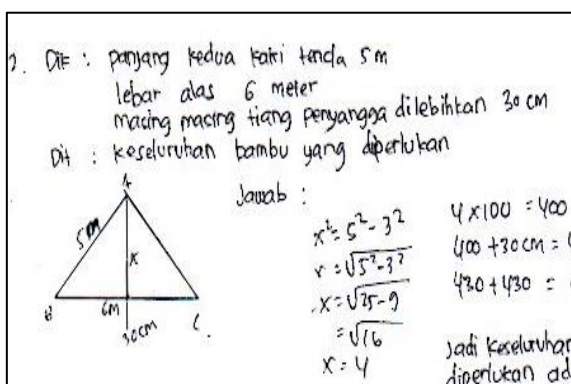 2. Dik : panjang kedua kaki tenda 5 m
lebar alas 6 meter
masing masing tiang penyangga dilebihkan 30 cm
Dit : keseluruhan bambu yang diperlukan
Jawab :
A
5m
x
B
6m
C
30cm
x² = 5² - 3²
x = √5² - 3²
x = √25 - 9
= √16
x = 4
4 x 100 = 400
400 + 30 cm =
430 + 430 =
Jadi keseluruhan
diperlukan